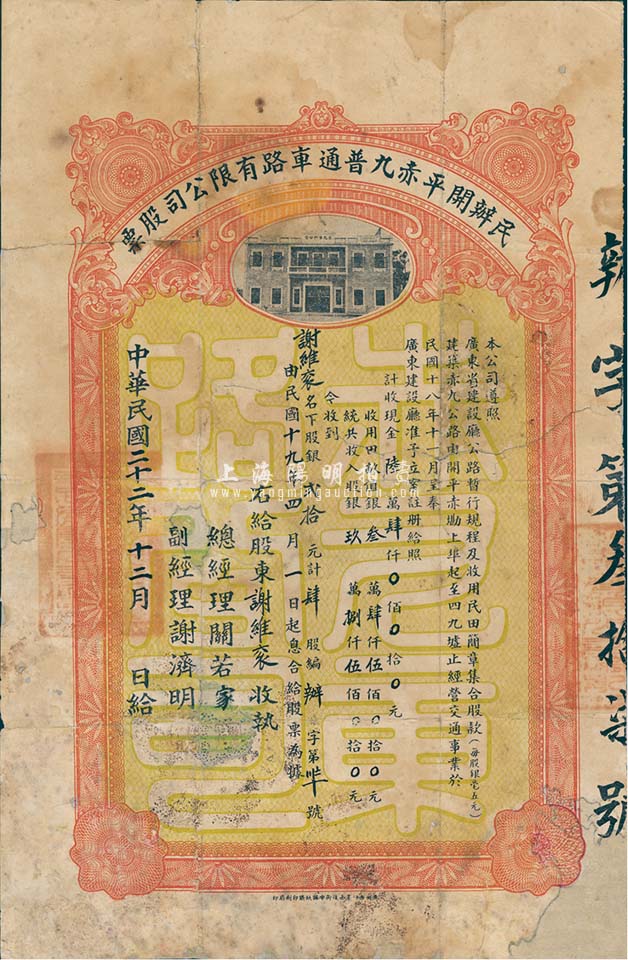 民辦開平赤九普通車路有限公司股票
本公司遵照
廣東省建設廳公路暫行規程及收用民田簡章集合股款（每股銀毫五元）
建築赤九公路由開平赤磡上埠起至四九墟止經營交通事業於
民國十八年十一月呈奉
廣東建設廳准予立案註册給照
計收現金陸萬肆仟0佰0拾0元
收用田畝價銀叁萬肆仟伍佰0拾0元
統共收入股銀玖萬捌仟伍佰0拾0元
今收到
謝維袞名下股銀貳拾元計肆股編辦字第卅七號
由民國十九年四月一日起息合給股票為據
右給股東謝維袞收執
總經理關若家
副經理謝濟明
中華民國二十二年十二月 日給
辦字第叁拾柒號
上海陽明拍賣
www.yangmingauction.com